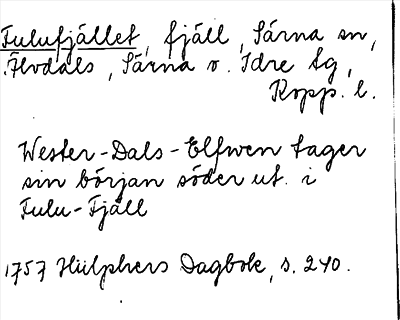 Fulufjället, fjäll, Särna sn,
Älvdals, Särna o. Idre tg,
Kopp. l.
Wester-Dals-Elfwen tager
sin början söder ut. i
Fulu-Fjäll
1757 Hülphers Dagbok, s. 240.